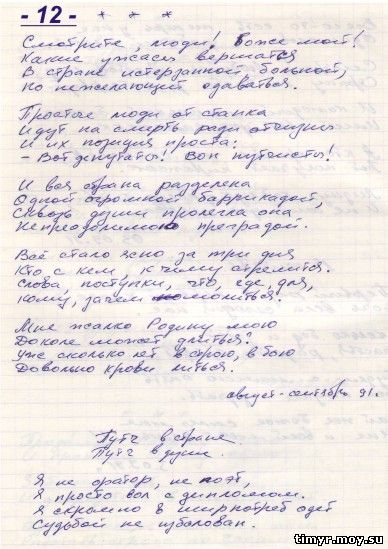 - 12 -
* * *
Смотрите, люди! Боже мой!
Какие ужасы вершатся
В стране истерзанной больной,
Но не желающей сдаваться.
Простые люди от станка
Идут на смерть ради отчизны
И их позиция проста:
- Вот депутаты! Вон путчисты!
И вся страна разделена
Одной огромной баррикадой,
Сквозь души пролегла она
Непреодолимою преградой.
Всё стало ясно за три дня
Кто с кем, к чему стремится.
Слова, поступки, что, где, для,
Кому, зачем молиться.
Мне жалко Родину мою
Доколе может длиться?
Уже сколько лет в строю, в бою
Довольно крови литься.
август-сентябрь 91г.
Путч в стране.
Путч в душе.
Я не оратор, не поэт,
Я просто вол с дипломом.
Я скромно в ширпотреб одет
Судьбой не избалован.
timyr.moy.su